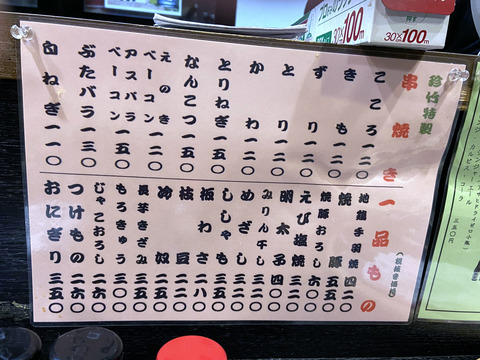 竹特製
串焼き一品もの
(税抜き価格)
こころ一二〇
きも一二〇
ずり一二〇
とり一二〇
かわ一二〇
とりねぎ一五〇
なんこつ一五〇
えのき
ベーコン一二〇
アスパラ
ベーコン一五〇
ぶたバラ一三〇
白ねぎ一一〇
地鶏手羽焼四二〇
焼豚五五〇
焼豚おろし六〇〇
えび塩焼三〇〇
明太子四〇〇
みりん干し三〇〇
めざし三〇〇
ししゃも三五〇
板わさ二八〇
枝豆二二〇
冷奴二二〇
長芋きざみ三五〇
もろきゅう三〇〇
じゃこおろし二六〇
つけもの二六〇
おにぎり三五〇
100m
30×100m
30×100m
コーラ
三五〇円